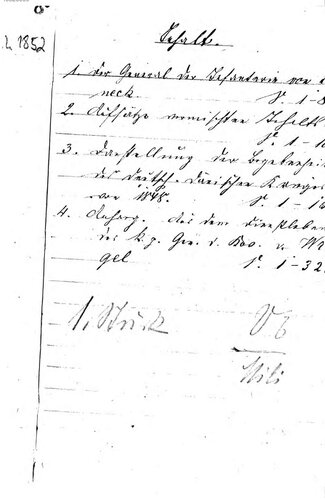 L 1852
Inhalt.
1. Der General der Infanterie von
neck. S. 1-8
2. Aufsätze vermischten Inhalts
S. 1-1
3. Darstellung der Begebenheit
des deutsch-dänischen Krieges
von 1848. S. 1-1
4. Anhang. Aus dem Dienstleben
des K. p. Gen. d. Kav. v. W
gel S. 1-32
1. Stück